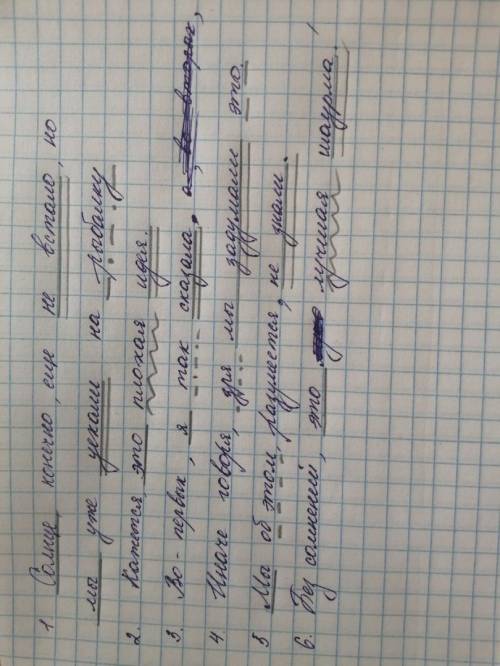 1 Солнце, конечно, еще не встало, но
мы уже уехали на рыбалку
2. Кажется, это плохая идея.
3. Во-первых, я так сказала, а, во-вторых,
4 Иначе говоря, зря мы задумали это.
5 Мы об этом, разумеется, не знали.
6. Без сомнений, это лучшая шаурма!